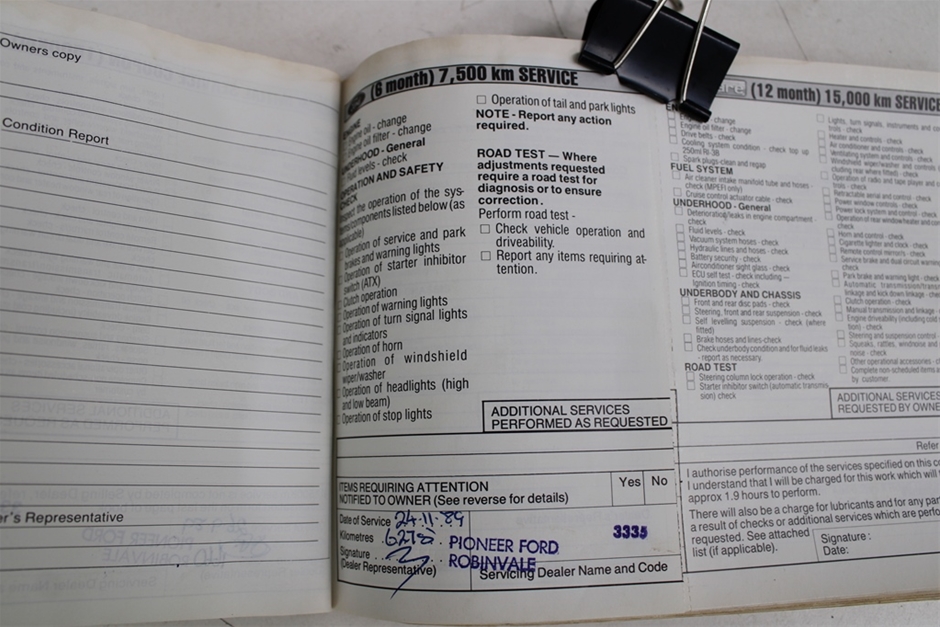 Owners copy
Condition Report
er's Representative
(6 month) 7,500 km SERVICE
Engine oil - change
Engine oil filter - change
UNDERHOOD - General
Fluid levels - check
OPERATION AND SAFETY
CHECK
the operation of the sys-
components listed below (as
Operation of service and park
brakes and warning lights
Operation of starter inhibitor
switch (ATX)
Clutch operation
Operation of warning lights
Operation of turn signal lights
and indicators
Operation of horn
Operation of windshield
wiper/washer
Operation of headlights (high
and low beam)
Operation of stop lights
Operation of tail and park lights
NOTE - Report any action
required.
ROAD TEST — Where
adjustments requested
require a road test for
diagnosis or to ensure
correction.
Perform road test -
Check vehicle operation and
driveability.
Report any items requiring at-
tention.
ADDITIONAL SERVICES
PERFORMED AS REQUESTED
ITEMS REQUIRING ATTENTION
NOTIFIED TO OWNER (See reverse for details)
Yes No
Date of Service 24.11.89
Kilometres 6278
Signature
(Dealer Representative)
3335
PIONEER FORD
ROBINVALE
Servicing Dealer Name and Code
(12 month) 15,000 km SERVICE
change
Engine oil filter - change
Drive belts - check
Cooling system condition - check top up
250ml RI-3B
Spark plugs-clean and regap
FUEL SYSTEM
Air cleaner intake manifold tube and hoses -
check (MPEFI only)
Cruise control actuator cable - check
UNDERHOOD - General
Deterioration/leaks in engine compartment -
check
Fluid levels - check
Vacuum system hoses - check
Hydraulic lines and hoses - check
Battery security - check
Airconditioner sight glass - check
ECU self test - check including —
Ignition timing - check
UNDERBODY AND CHASSIS
Front and rear disc pads - check
Steering, front and rear suspension - check
Self levelling suspension - check (where
fitted)
Brake hoses and lines-check
Check underbody condition and for fluid leaks
- report as necessary.
ROAD TEST
Steering column lock operation - check
Starter inhibitor switch (automatic transmis
sion) check
Lights, turn signals, instruments and con
trols - check
Heater and controls - check
Air conditioner and controls - check
Ventilating system and controls - check
Windshield wiper/washer and controls
cluding rear where fitted) - check
Operation of radio and tape player and c
trols - check
Retractable aerial and control - check
Power window controls - check
Power lock system and control - check
Operation of rear window/heater and co
check
Horn and control - check
Cigarette lighter and clock - check
Remote control mirrors - check
Service brake and dual circuit warning
check
Park brake and warning light - check
Automatic transmission/trans
linkage and kick down linkage - check
Clutch operation - check
Manual transmission and linkage
Engine driveability (including cold
tion) - check
Steering and suspension control
Squeaks, rattles, windnoise and
noise - check
Other operational accessories
Complete non-scheduled items a
by customer.
ADDITIONAL SERVICES
REQUESTED BY OWNE
Refer
I authorise performance of the services specified on this c
I understand that I will be charged for this work which will
approx 1.9 hours to perform.
There will also be a charge for lubricants and for any par
a result of checks or additional services which are perfo
requested. See attached
list (if applicable).
Signature :
Date: